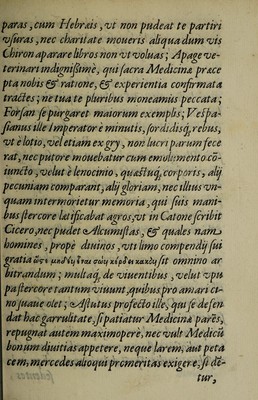 paras, cum Hebræis, vt non pudeat te partiri
vſuras, nec charitate moueris aliqua dum vis
Chiron aparare libros non vt voluas; Apage ve-
terinari indigniſsimè, qui ſacra Medicinæ præce
pta nobis & ratione, & experientia confirmata
tractes; ne tua te pluribus moneamus peccata;
Forſan ſe purgaret maiorum exemplis; Veſpa-
ſianus ille Imperator è minutis, ſordidisq, rebus,
vt è lotio, vel etiam ex gry, non lucri parum fece
rat, nec putore mouebatur cum emolumento cō-
iuncto, velut è lenocinio, quæſtuq, corporis, alij
pecuniam comparant, alij gloriam, nec illius vn-
quam intermorietur memoria, qui ſuis mani-
bus ſtercore lætificabat agros, vt in Catone ſcribit
Cicero, nec pudet Alcumiſtas, & quales nam
homines, propè diuinos, vti limo compendij ſui
gratia ſit omnino ar
bitrandum; multaq, de viuentibus, velut vpu
pa ſtercore tantum viuunt, quibus pro amari ci-
no ſuaue olet; Aſtutus profectò ille, qui ſe defen
dat hac garrulitate, ſi patiatur Medicina parēs,
repugnat autem maximoperè, nec vult Medicū
bonum diuitias appetere, neque larem, aut peta
cem, mercedes alioqui promeritas exigere, ſi dē-
tur,